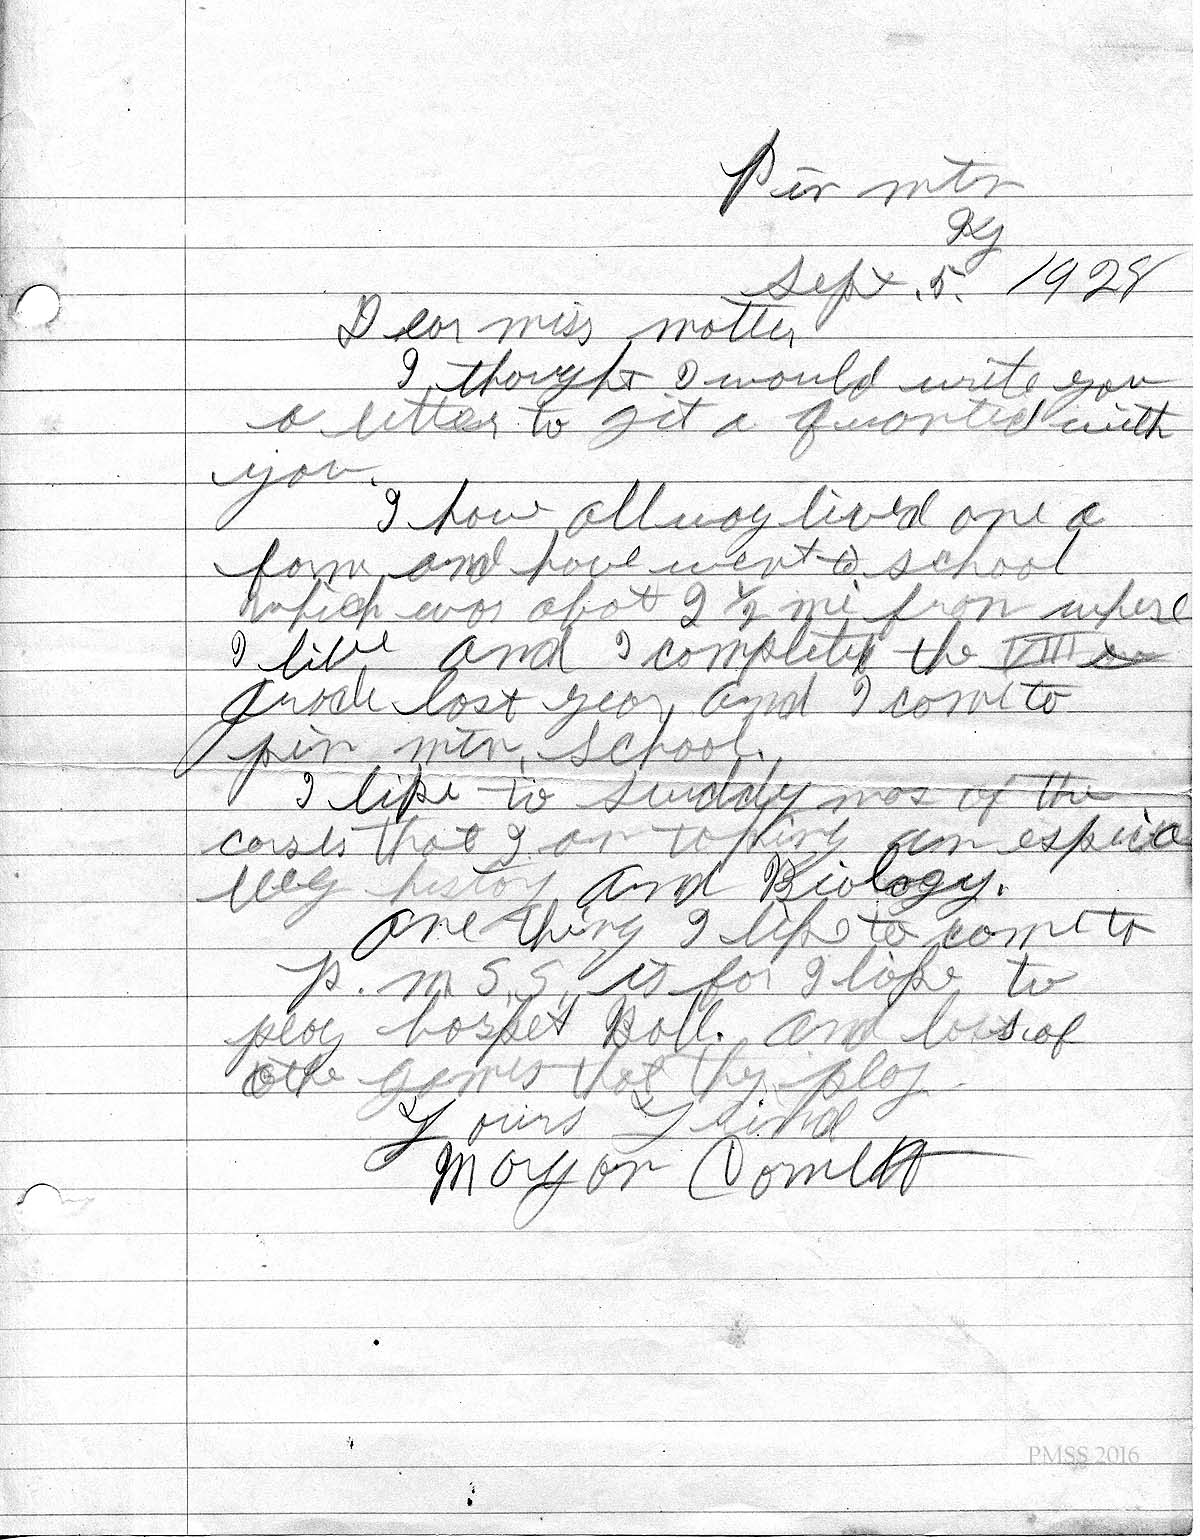 Pin mtn
Ky
Sept. 5. 1928
Dear miss motter
I thought I would write you
a letter to git a quanted with
you.
I have allway lived one a
farm and have went to school
which was abot 2 1/2 mi fron where
I live and I completed the VIII
grade last year and I come to
pin mtn. school.
I like to studdy mos of the
that I am taking an espicia
lley history and Biology.
one thing I like to come to
P. M. S. S. is for I like to
play basket Ball. and lots of
othe games that they play.
Yours Frind
Cornett
PMSS 2016